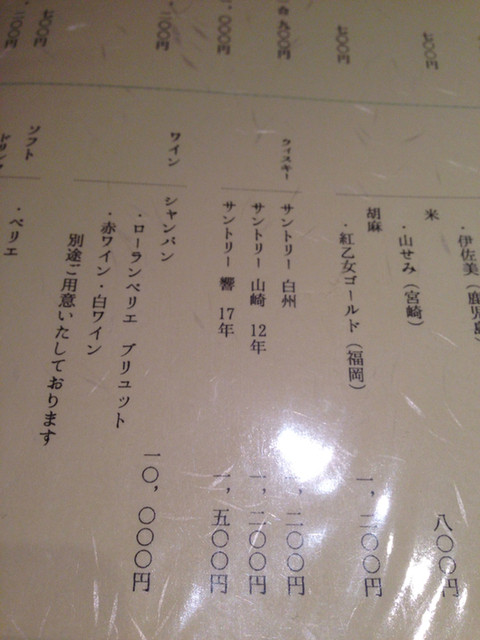 七〇〇円
七〇〇円
九〇〇円
、〇〇〇円
二〇〇円
七〇〇円
二〇〇円
・伊佐美（鹿児島）
米
・山せみ（宮崎） 八〇〇円
胡麻
・紅乙女ゴールド（福岡） 一、二〇〇円
ウィスキー
サントリー 白州 一、二〇〇円
サントリー 山崎 12年 一、二〇〇円
サントリー 響 17年 一、五〇〇円
ワイン
シャンパン
・ローランペリエ ブリュット 一〇，〇〇〇円
・赤ワイン・白ワイン
別途ご用意いたしております
ソフト
ドリンク
・ペリエ